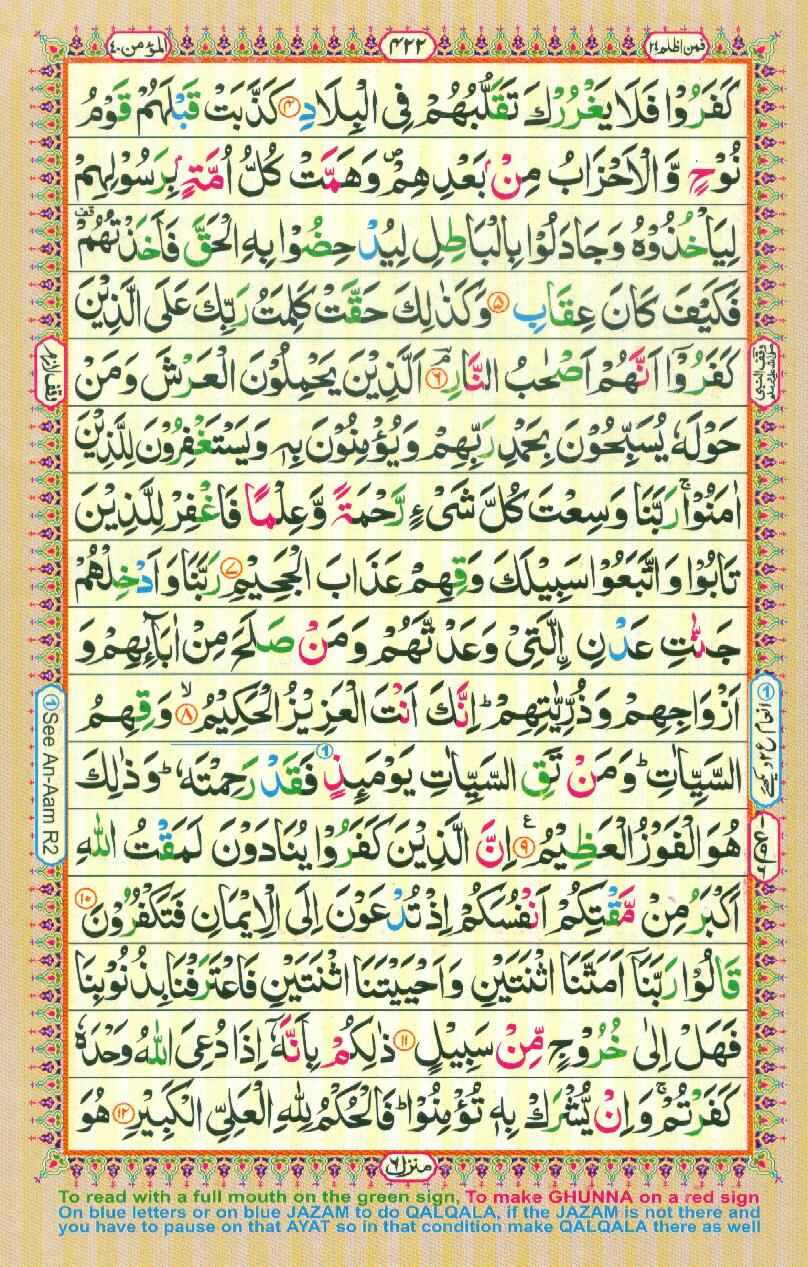 المؤمن ٤٠
٤٢٢
فمن اظلم ٢٤
كَفَرُوْا فَلَا يَغْرُرْكَ تَقَلُّبُهُمْ فِى الْبِلَادِ ۝۴ كَذَّبَتْ قَبْلَهُمْ قَوْمُ
نُوْحٍ وَّالْاَحْزَابُ مِنْۢ بَعْدِهِمْ ۪ وَهَمَّتْ كُلُّ اُمَّةٍۭ بِرَسُوْلِهِمْ
لِيَاْخُذُوْهُ وَجَادَلُوْا بِالْبَاطِلِ لِيُدْحِضُوْا بِهِ الْحَقَّ فَاَخَذْتُهُمْ قف
فَكَيْفَ كَانَ عِقَابِ ۝۵ وَكَذٰلِكَ حَقَّتْ كَلِمَتُ رَبِّكَ عَلَى الَّذِيْنَ
كَفَرُوْۤا اَنَّهُمْ اَصْحٰبُ النَّارِ ۘ۝۶ اَلَّذِيْنَ يَحْمِلُوْنَ الْعَرْشَ وَمَنْ
حَوْلَهٗ يُسَبِّحُوْنَ بِحَمْدِ رَبِّهِمْ وَيُؤْمِنُوْنَ بِهٖ وَيَسْتَغْفِرُوْنَ لِلَّذِيْنَ
اٰمَنُوْا ۚ رَبَّنَا وَسِعْتَ كُلَّ شَىْءٍ رَّحْمَةً وَّعِلْمًا فَاغْفِرْ لِلَّذِيْنَ
تَابُوْا وَاتَّبَعُوْا سَبِيْلَكَ وَقِهِمْ عَذَابَ الْجَحِيْمِ ۝۷ رَبَّنَا وَاَدْخِلْهُمْ
جَنّٰتِ عَدْنِ ِۨالَّتِىْ وَعَدْتَّهُمْ وَمَنْ صَلَحَ مِنْ اٰبَآئِهِمْ وَ
اَزْوَاجِهِمْ وَذُرِّيّٰتِهِمْ ؕ اِنَّكَ اَنْتَ الْعَزِيْزُ الْحَكِيْمُ ۙ۝۸ وَقِهِمُ
السَّيِّاٰتِ ؕ وَمَنْ تَقِ السَّيِّاٰتِ يَوْمَئِذٍ ① فَقَدْ رَحِمْتَهٗ ؕ وَذٰلِكَ
هُوَ الْفَوْزُ الْعَظِيْمُ ۝۹ ع اِنَّ الَّذِيْنَ كَفَرُوْا يُنَادَوْنَ لَمَقْتُ اللّٰهِ
اَكْبَرُ مِنْ مَّقْتِكُمْ اَنْفُسَكُمْ اِذْ تُدْعَوْنَ اِلَى الْاِيْمَانِ فَتَكْفُرُوْنَ ۝۱۰
قَالُوْا رَبَّنَاۤ اَمَتَّنَا اثْنَتَيْنِ وَاَحْيَيْتَنَا اثْنَتَيْنِ فَاعْتَرَفْنَا بِذُنُوْبِنَا
فَهَلْ اِلٰى خُرُوْجٍ مِّنْ سَبِيْلٍ ۝۱۱ ذٰلِكُمْ بِاَنَّهٗۤ اِذَا دُعِىَ اللّٰهُ وَحْدَهٗ
كَفَرْتُمْ ۚ وَاِنْ يُّشْرَكْ بِهٖ تُؤْمِنُوْا ؕ فَالْحُكْمُ لِلّٰهِ الْعَلِىِّ الْكَبِيْرِ ۝۱۲ هُوَ
وقف لازم
① See An-Aam R2
منزل ٦
To read with a full mouth on the green sign, To make GHUNNA on a red sign
On blue letters or on blue JAZAM to do QALQALA, if the JAZAM is not there and
you have to pause on that AYAT so in that condition make QALQALA there as well